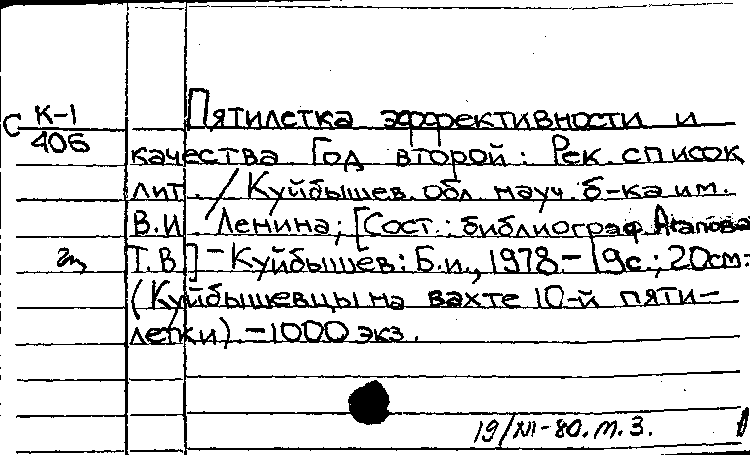 С К-1
406
Пятилетка эффективности и
качества. Год второй: Рек. список
лит. / Куйбышев. обл. науч. б-ка им.
В.И. Ленина; [Сост.: библиограф Агапова
Т.В.] - Куйбышев: Б.и., 1978. - 19с.; 20см. -
(Куйбышевцы на вахте 10-й пяти-
летки). - 1000 экз.
19/XII-80. т. 3.